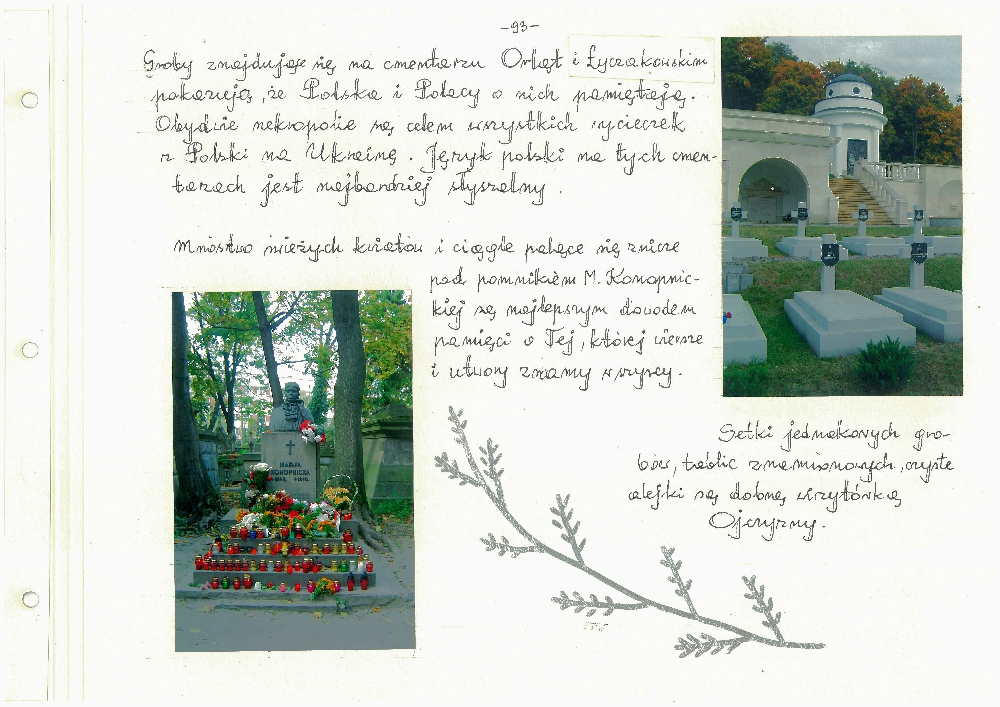 -93-
Groby znajdujące się na cmentarzu Orląt i Łyczakowskim
pokazują, że Polska i Polacy o nich pamiętają.
Obydwie nekropolie są celem wszystkich wycieczek
z Polski na Ukrainę. Język polski na tych cmen-
tarzach jest najbardziej słyszalny.
Mnóstwo świeżych kwiatów i ciągle palące się znicze
pod pomnikiem M. Konopnic-
kiej są najlepszym dowodem
pamięci o Tej, której wiersze
i utwory znamy wszyscy.
MARIA
KONOPNICKA
Setki jednakowych gro-
bów, tablic znamionowych, czyste
alejki są dobrą wizytówką
Ojczyzny.